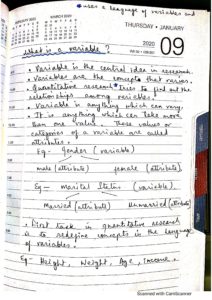 * uses a language of variables and
THURSDAY • JANUARY
2020
09
what is a variable?
• Variable is the central idea in research.
• Variables are the concepts that varies.
• Quantitative research * tries to find out the
relationship among variables.
• Variable is anything which can vary.
• It is anything which can take more
than one value. These values or
categories of a variable are called
attributes.
Eg: Gender (variable)
male (attribute) female (attribute)
Eg - Marital Status (variable)
Married (attribute) Unmarried (attribute)
• First task in quantitative research
is to redefine concepts in the language
of variables.
Eg - Height, Weight, Age, Income.
Scanned with CamScanner